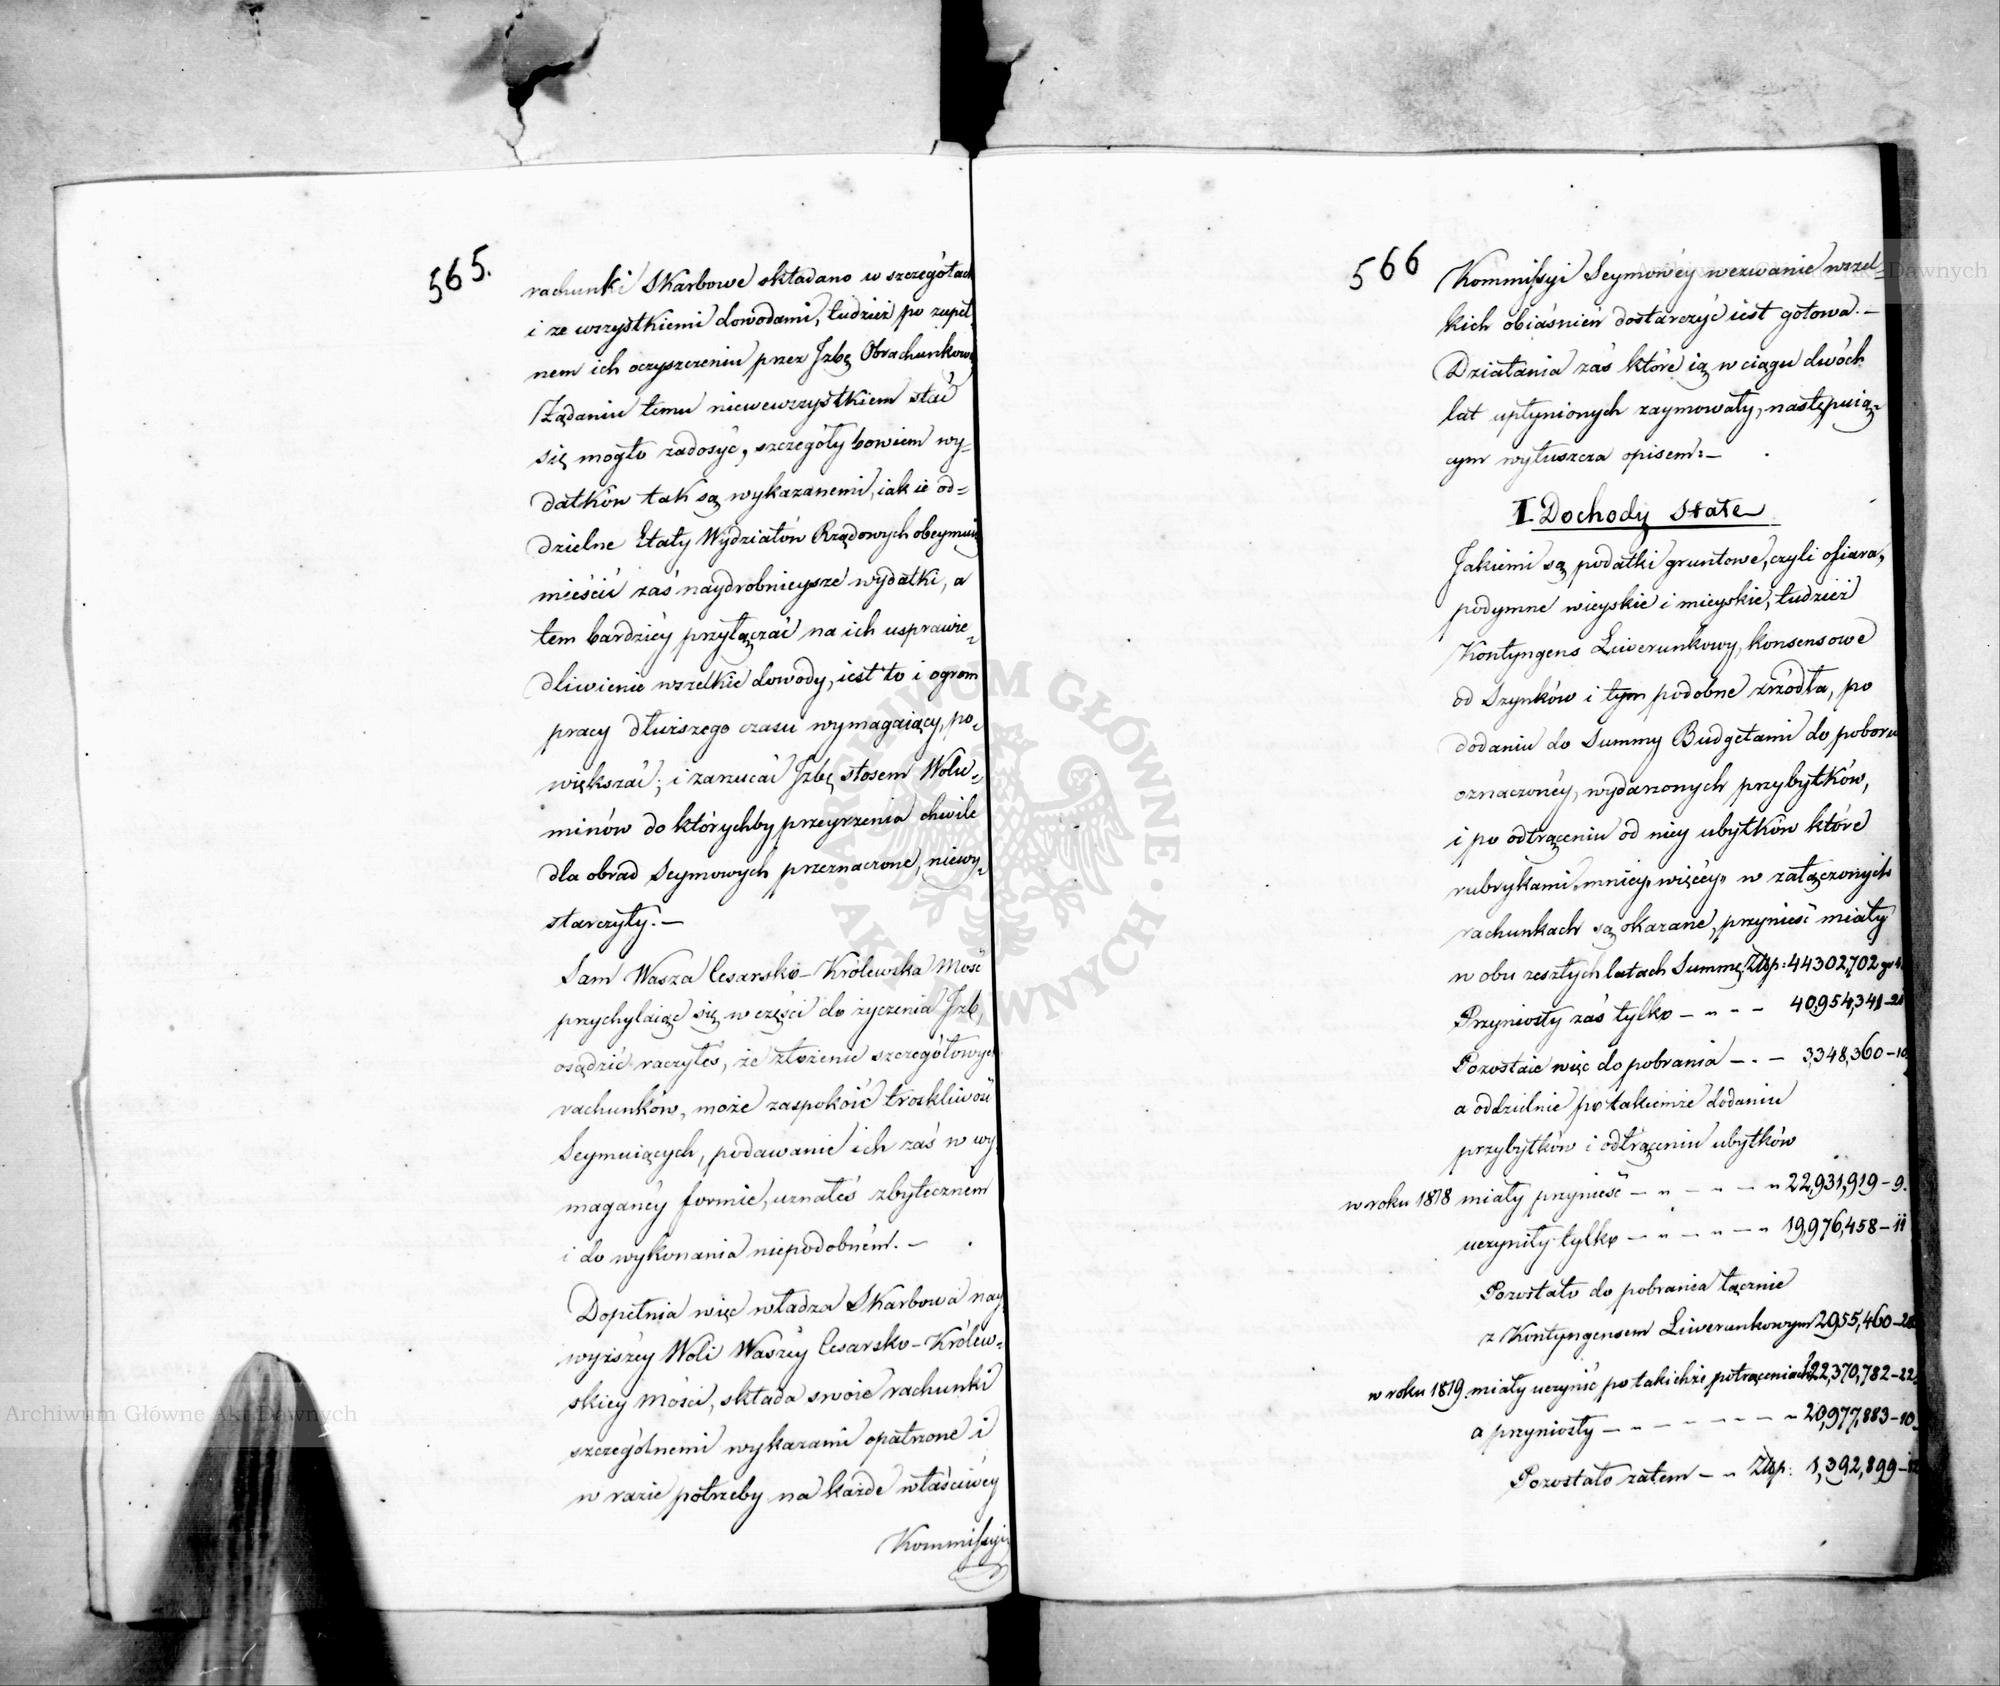 565.
rachunki Skarbowe składano w szczegółach
i ze wszystkiemi dowodami, tudzież po zupeł
nem ich oczyszczeniu przez Jzbę Obrachunkow
Żądaniu temu niewewszystkiem stać
się mogło zadosyć, szczegóły bowiem wy=
datków tak są wykazanemi, iakie od=
dzielne Etaty Wydziałów Rządowych obeymuią
mieścić zaś naydrobnieysze wydatki, a
tem bardziéy przyłączać na ich usprawie=
dliwienie wszelkie dowody, iest to i ogrom
pracy dłuższego czasu wymagaiącéy, po=
większać; i zarzucać Jzbę stosem Wolu=
minów do którychby przeyrzenia chwile
dla obrad Seymowych przeznaczone, niewy=
starczyły.—
Sam Wasza Cesarsko-Królewska Mość
przychylaiąc się w części do życzenia Jzb,
osądzić raczyłeś, że złożenie szczegółowych
rachunków, może zaspokoić troskliwość
Seymuiących, podawanie ich zaś w wy
maganéy formie, uznałeś zbytecznem
i do wykonania niepodobném.—
Dopełnia więc władza Skarbowa nay
wyższéy Woli Waszéy Cesarsko-Królew=
skiey Mości, składa swoie rachunki
szczególnemi wykazami opatrzone i
w razie potrzeby na każde właściwéy
Kommissyi
566
Kommissyi Seymowéy wezwanie wszel=
kich obiaśnień dostarczyć iest gotowa.—
Działania zaś które ią w ciągu dwóch
lat upłynionych zaymowały, następuią=
cym wyłuszcza opisem:—
I. Dochody Stałe
Jakiemi są podatki gruntowe, czyli ofiara,
podymne wieyskie i mieyskie, tudzież
Kontyngens Liwerunkowy, konsensowe
od Szynków i tym podobne źrzódła, po
dodaniu do Summy Budgetami do poboru
oznaczonéy, wydarzonych przybytków,
i po odtrąceniu od niey ubytków które
rubrykami „mniey„ więcéy" w załączonych
rachunkach są okazane, przynieść miały
w obu zeszłych latach Summę Złlp: 44302,702 gr 4.
Przyniosły zaś tylko — „ — — 40,954,341-24
Pozostaie więc do pobrania — „ — 3,348,360-10
a oddzielnie po takiemże dodaniu
przybytków i odtrąceniu ubytków
w roku 1818 miały przynieść — „ — „ — „ 22,931,919-9.
uczyniły tylko — „ — „ — „ 19,976,458-11
Pozostało do pobrania łącznie
z Kontyngensem Liwerunkowym 2955,460-28
w roku 1819. miały uczynić po takichże potrąceniach 22,370,782-22.
a przyniosły — „ — — — — „ 20,977,883-10.
Pozostało zatem — „ Złlp: 1,392,899-12
ARCHIWUM GŁÓWNE
AKT DAWNYCH
Archiwum Główne Akt Dawnych
Archiwum Główne Akt Dawnych